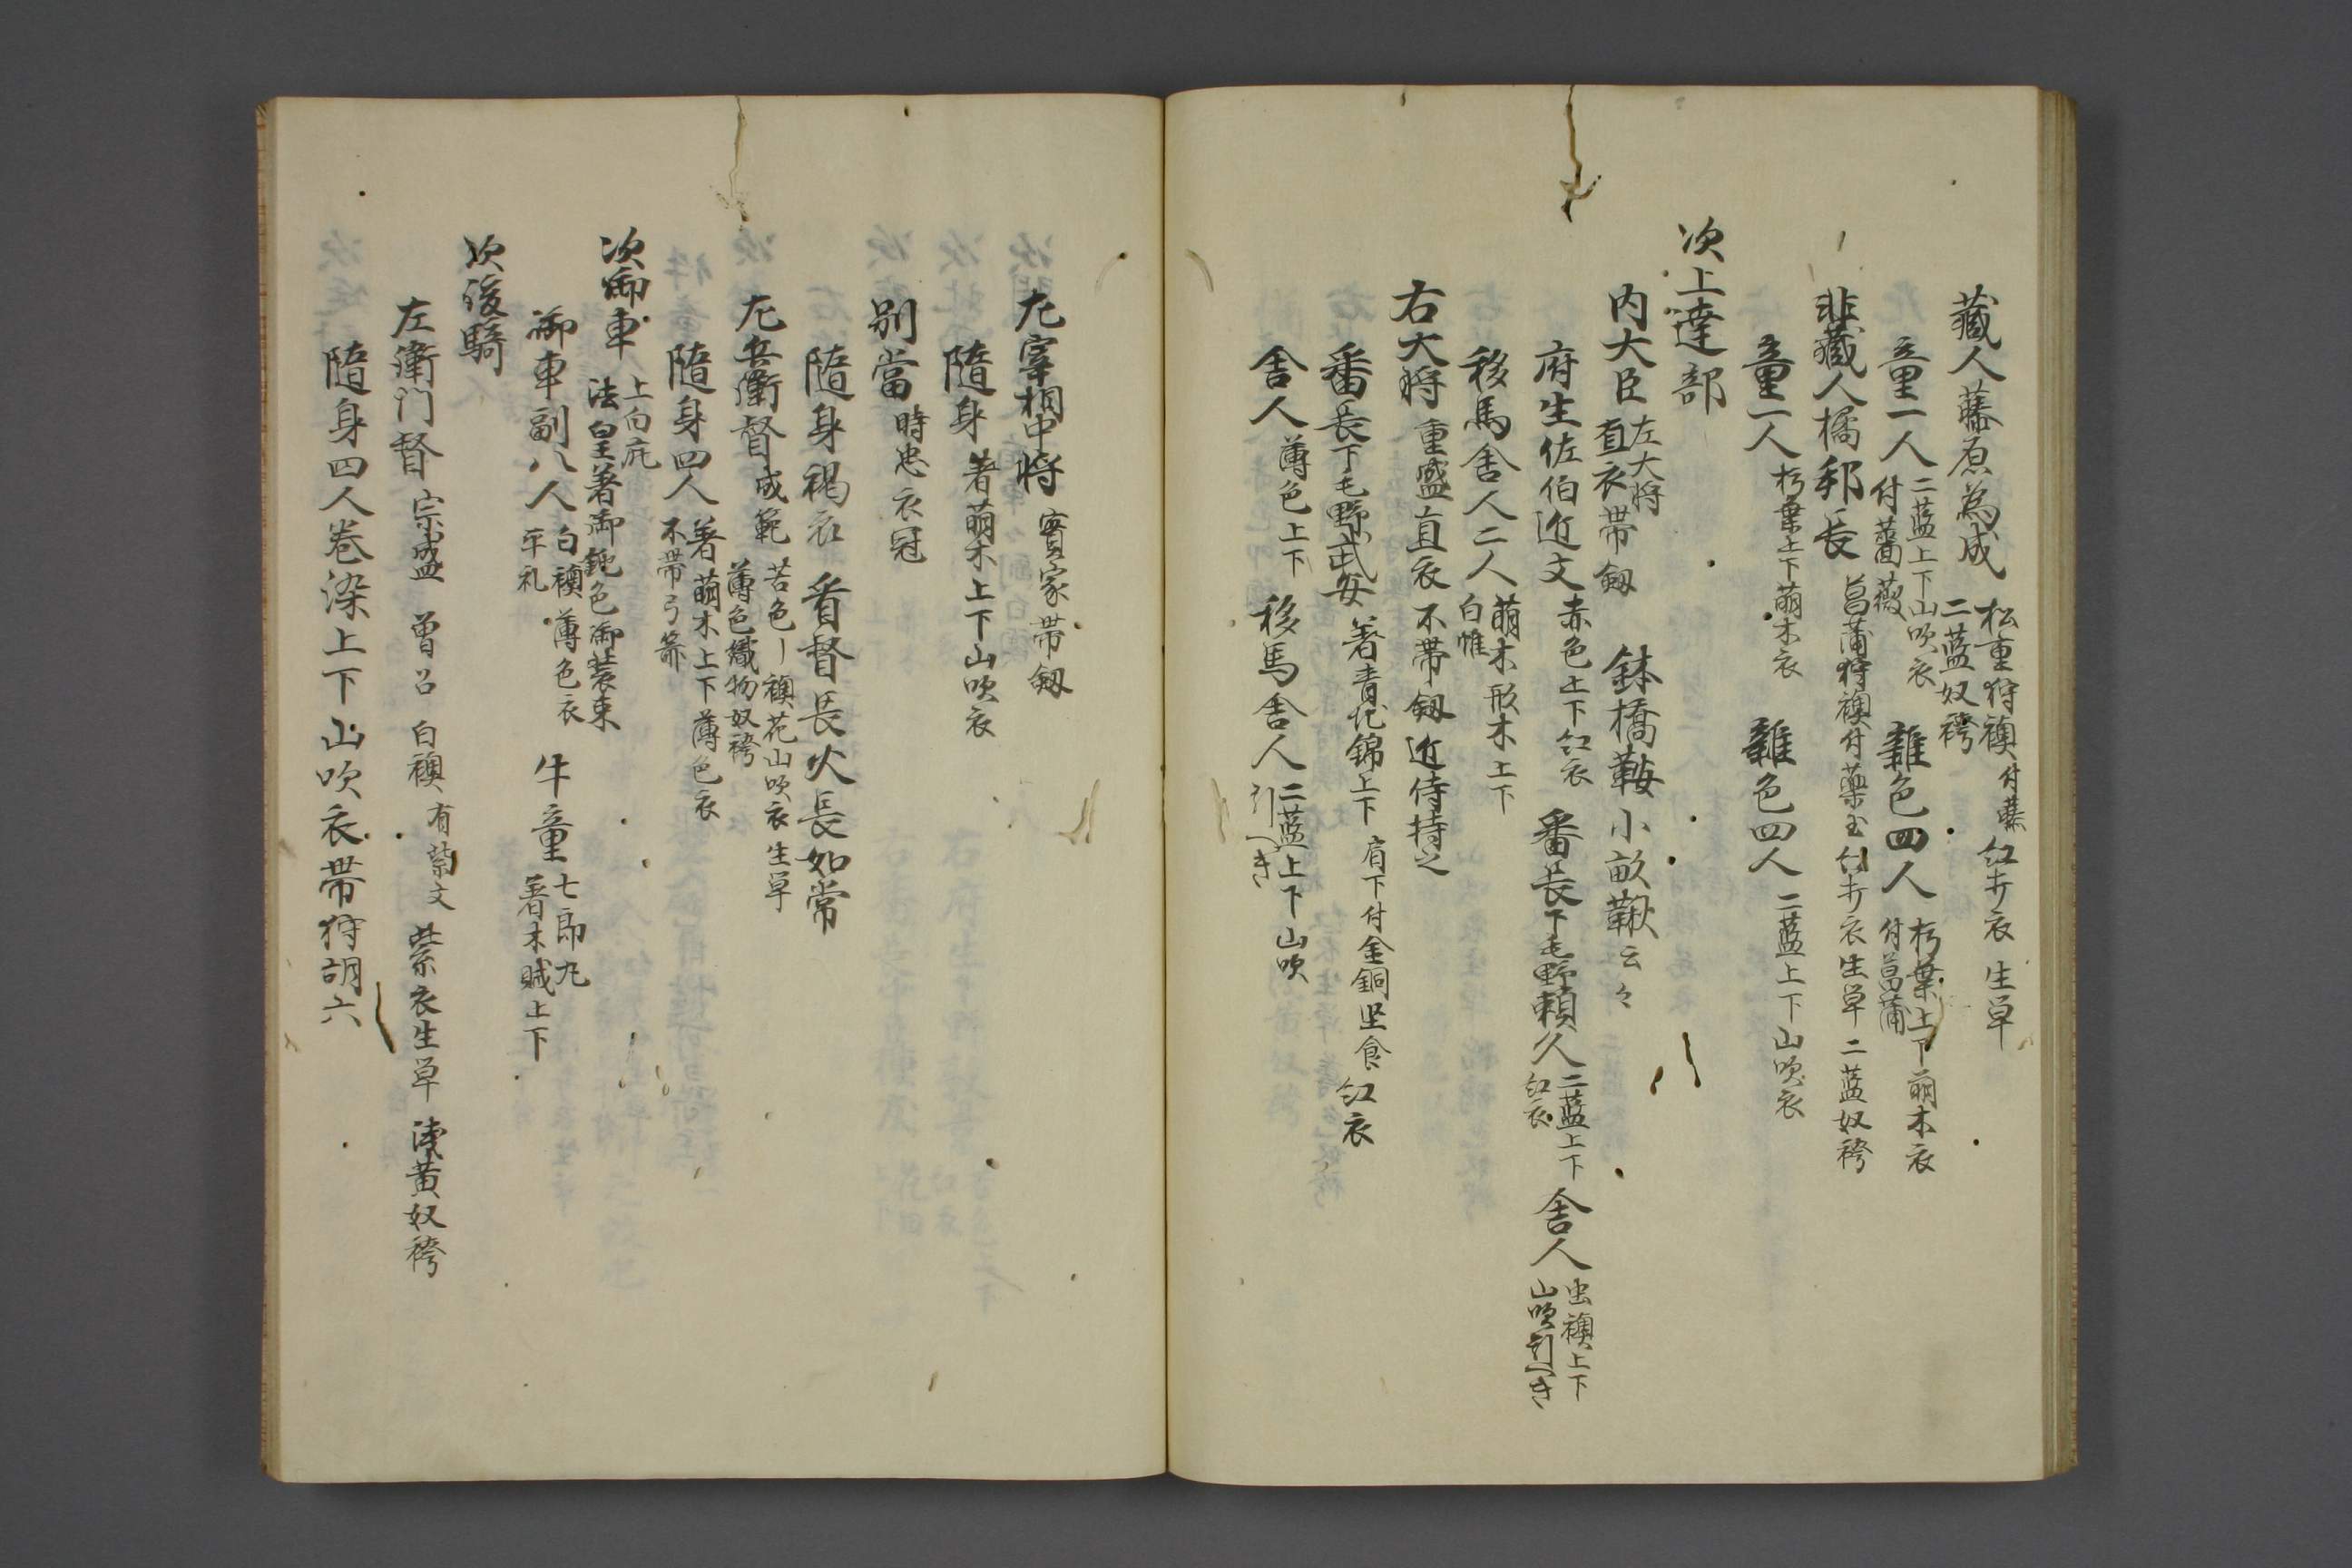 藏人藤原為成 松重狩襖付藤 紅打衣 生単
二藍奴袴
童一人 二藍上下山吹衣 雑色四人 朽葉上下萠木衣
付薔薇 付菖蒲
非藏人橘邦長 菖蒲狩襖付薬玉 紅打衣 生単 二藍奴袴
童一人 朽葉上下萠木衣 雑色四人 二藍上下山吹衣
次上達部
内大臣 左大将 鉢橋鞍 小畝鞦 云々
直衣帯釼
府生佐伯近文 赤色上下紅衣 番長下毛野頼久 二藍上下 舎人 虫襖上下
紅衣 山吹引へき
移馬舎人二人 萠木形木上下
白帷
右大将 重盛直衣 不帯釼 近侍持之
番長下毛野武安 著青地錦上下 肩下付金銅 紅衣
舎人 薄色上下 移馬舎人 二藍上下山吹
引へき
左宰相中将 實家帯釼
隨身 著萠木上下山吹衣
別當 時忠衣冠
隨身褐衣 看督長火長如常
左兵衛督 成範 苦色ー襖花山吹衣生単
薄色織物奴袴
隨身四人 著萠木上下薄色衣
不帯弓箭
次御車 上白庇
法皇著御鈍色御装束
御車副八人 白襖薄色衣 牛童 七郎丸
平礼 著木賊上下
次後騎
左衛門督 宗盛 白襖 有紫文 紫衣生単 浅黄奴袴
隨身四人巻染上下山吹衣帯狩胡六